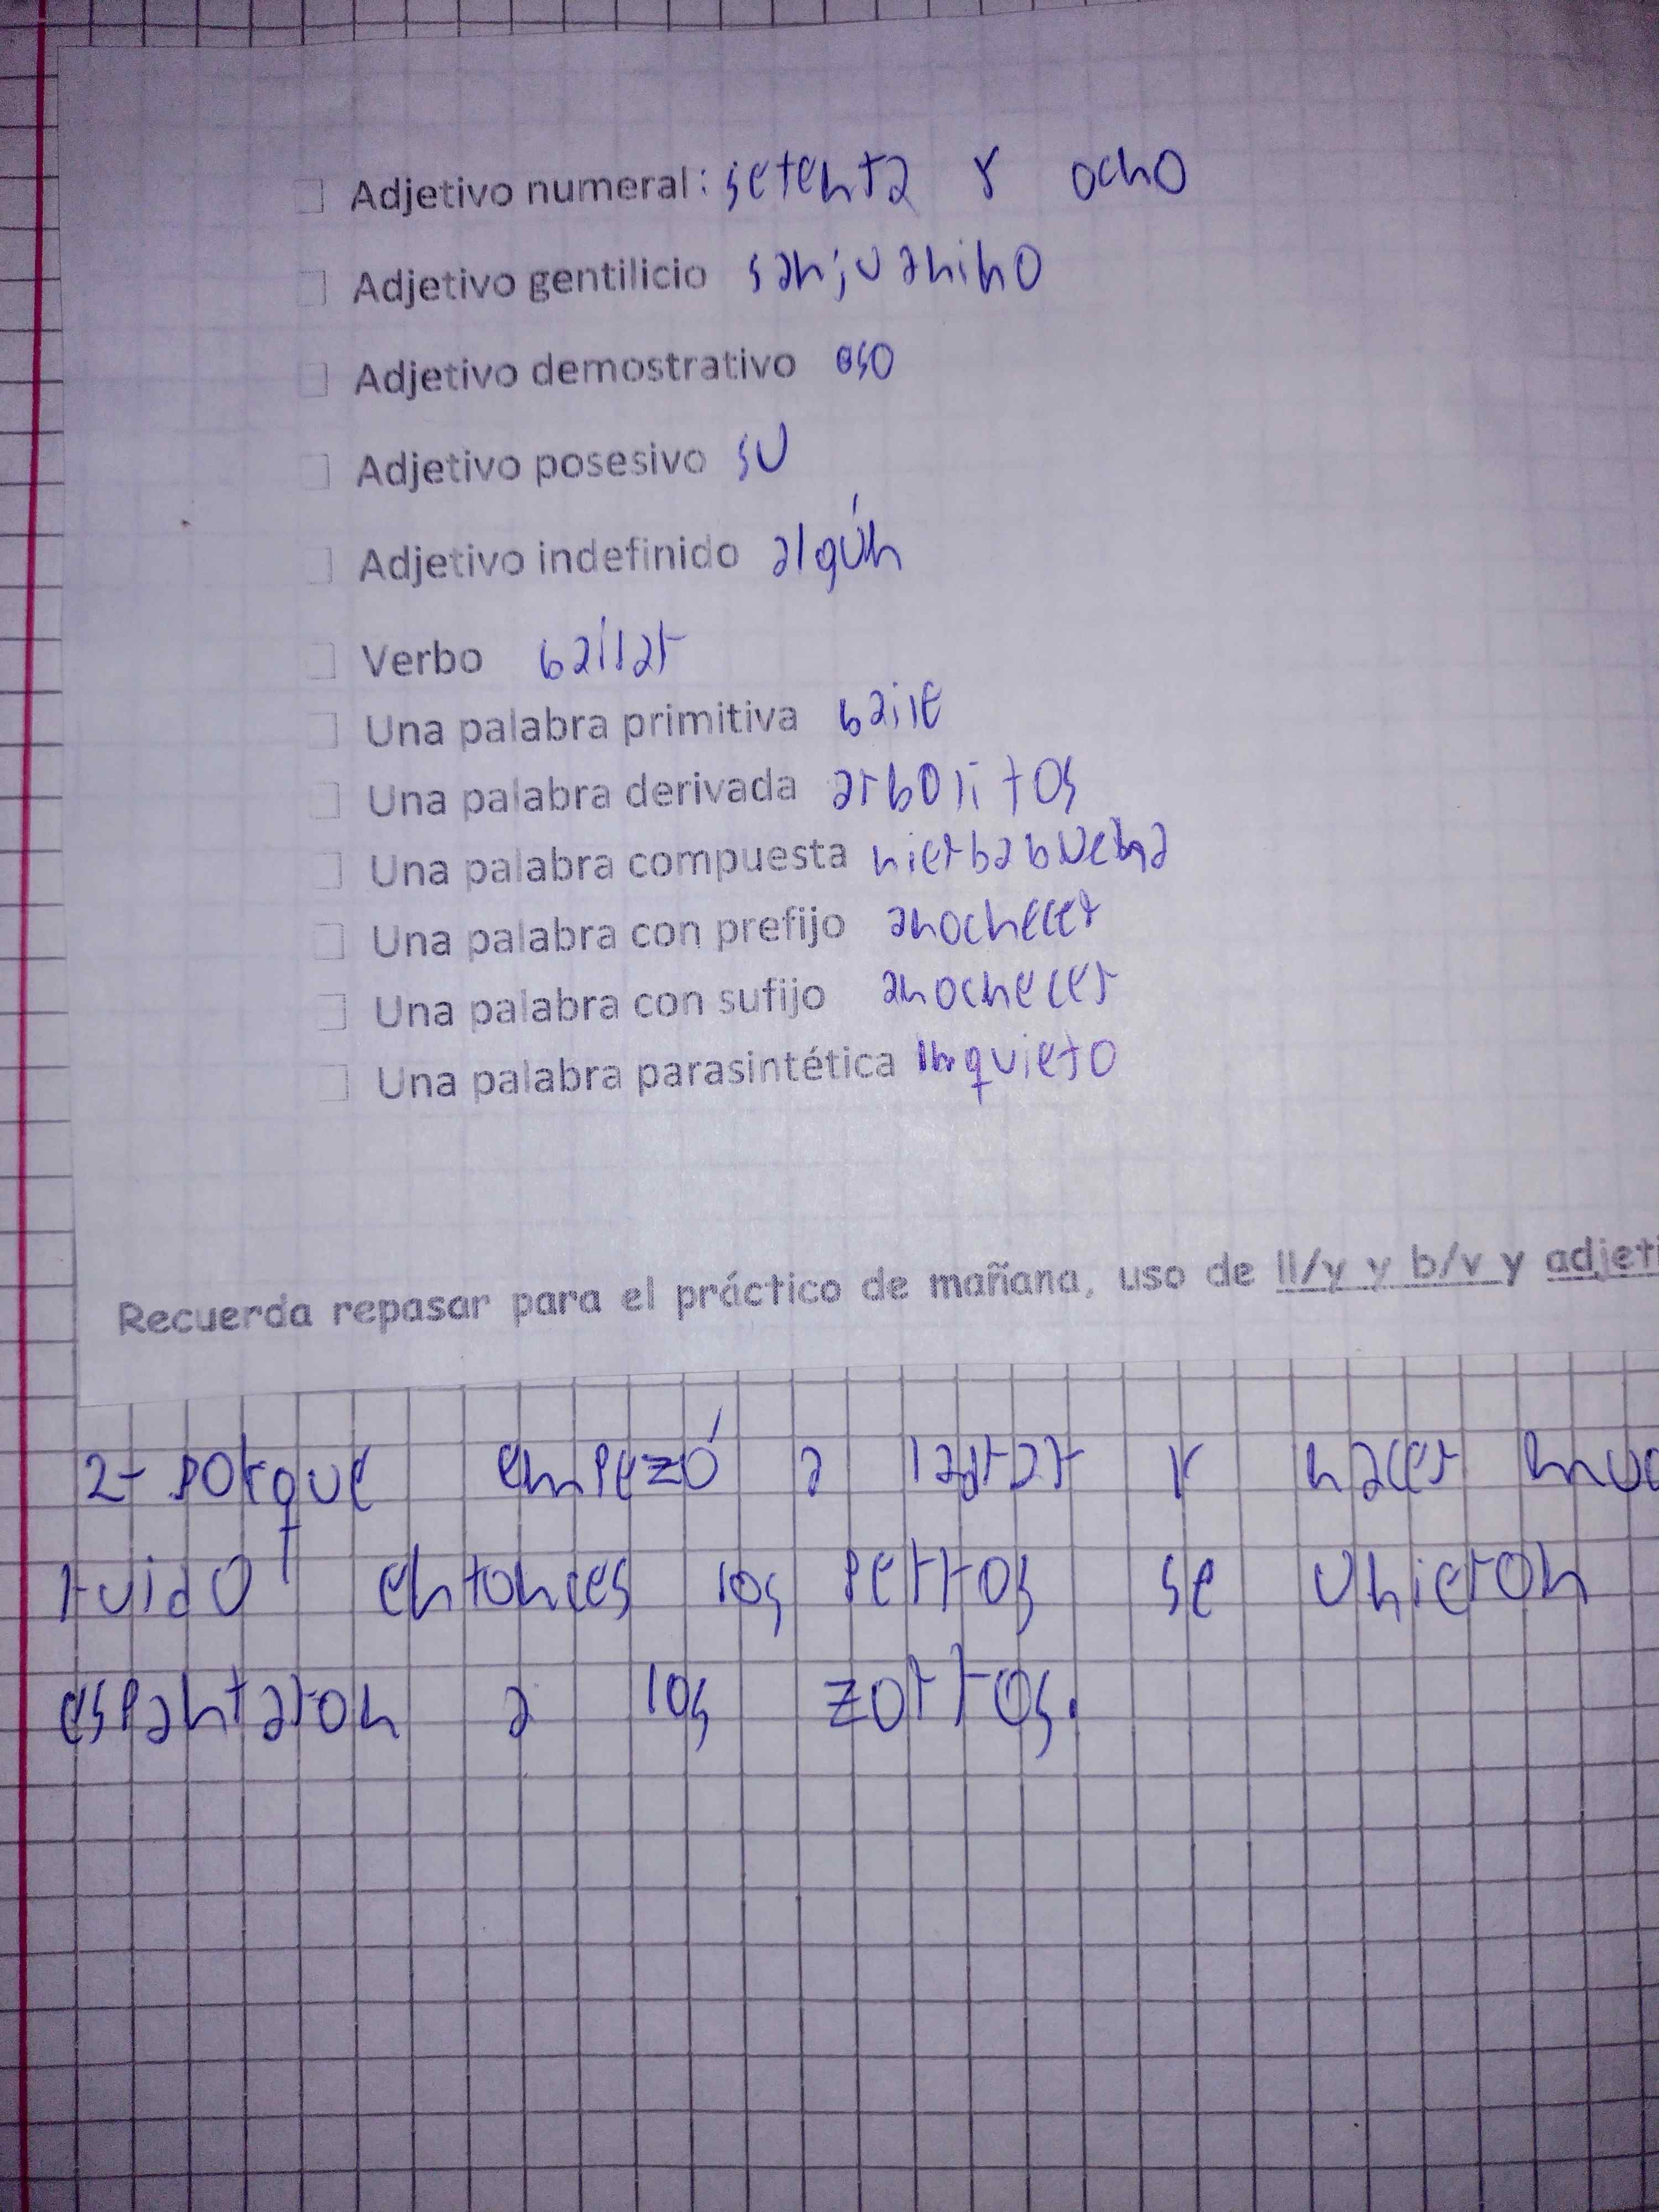 Adjetivo numeral: setenta y ocho
Adjetivo gentilicio sanjuanino
Adjetivo demostrativo eso
Adjetivo posesivo su
Adjetivo indefinido algún
Verbo bailar
Una palabra primitiva baile
Una palabra derivada arbolitos
Una palabra compuesta hierbabuena
Una palabra con prefijo anochecer
Una palabra con sufijo anochecer
Una palabra parasintética inquieto
Recuerda repasar para el práctico de mañana, uso de ll/y y b/v y adjeti
2- porque empezó a ladrar y hacer muc
ruido, entonces los perros se unieron
espantaron a los zorros.